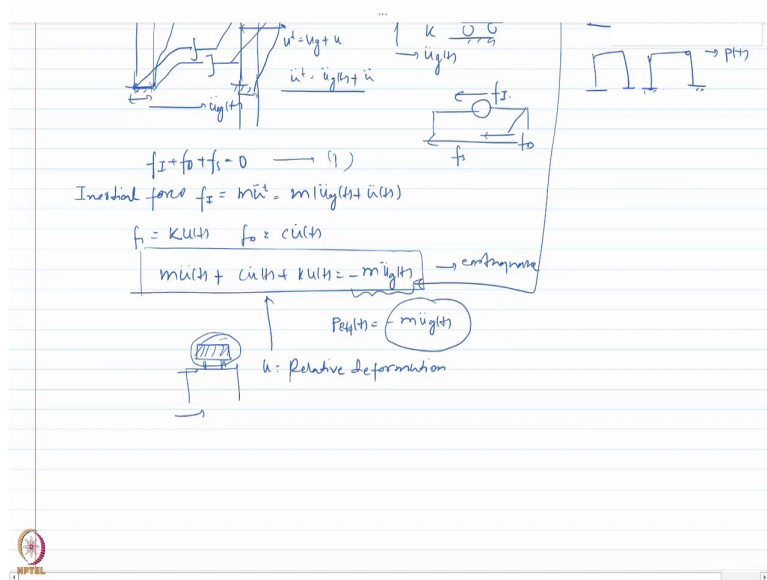 K
uᵗ = ug + u
üg(t)
→ P(t)
üᵗ = üg(t) + ü
üg(t)
fI
fs
fD
fI + fD + fs = 0 ⟶ (1)
Inertial force fI = müᵗ = m(üg(t) + ü(t))
fs = Ku(t) fD = cu̇(t)
mü(t) + cu̇(t) + ku(t) = -müg(t) → earthquake
Peff(t) = -müg(t)
u: Relative deformation
NPTEL